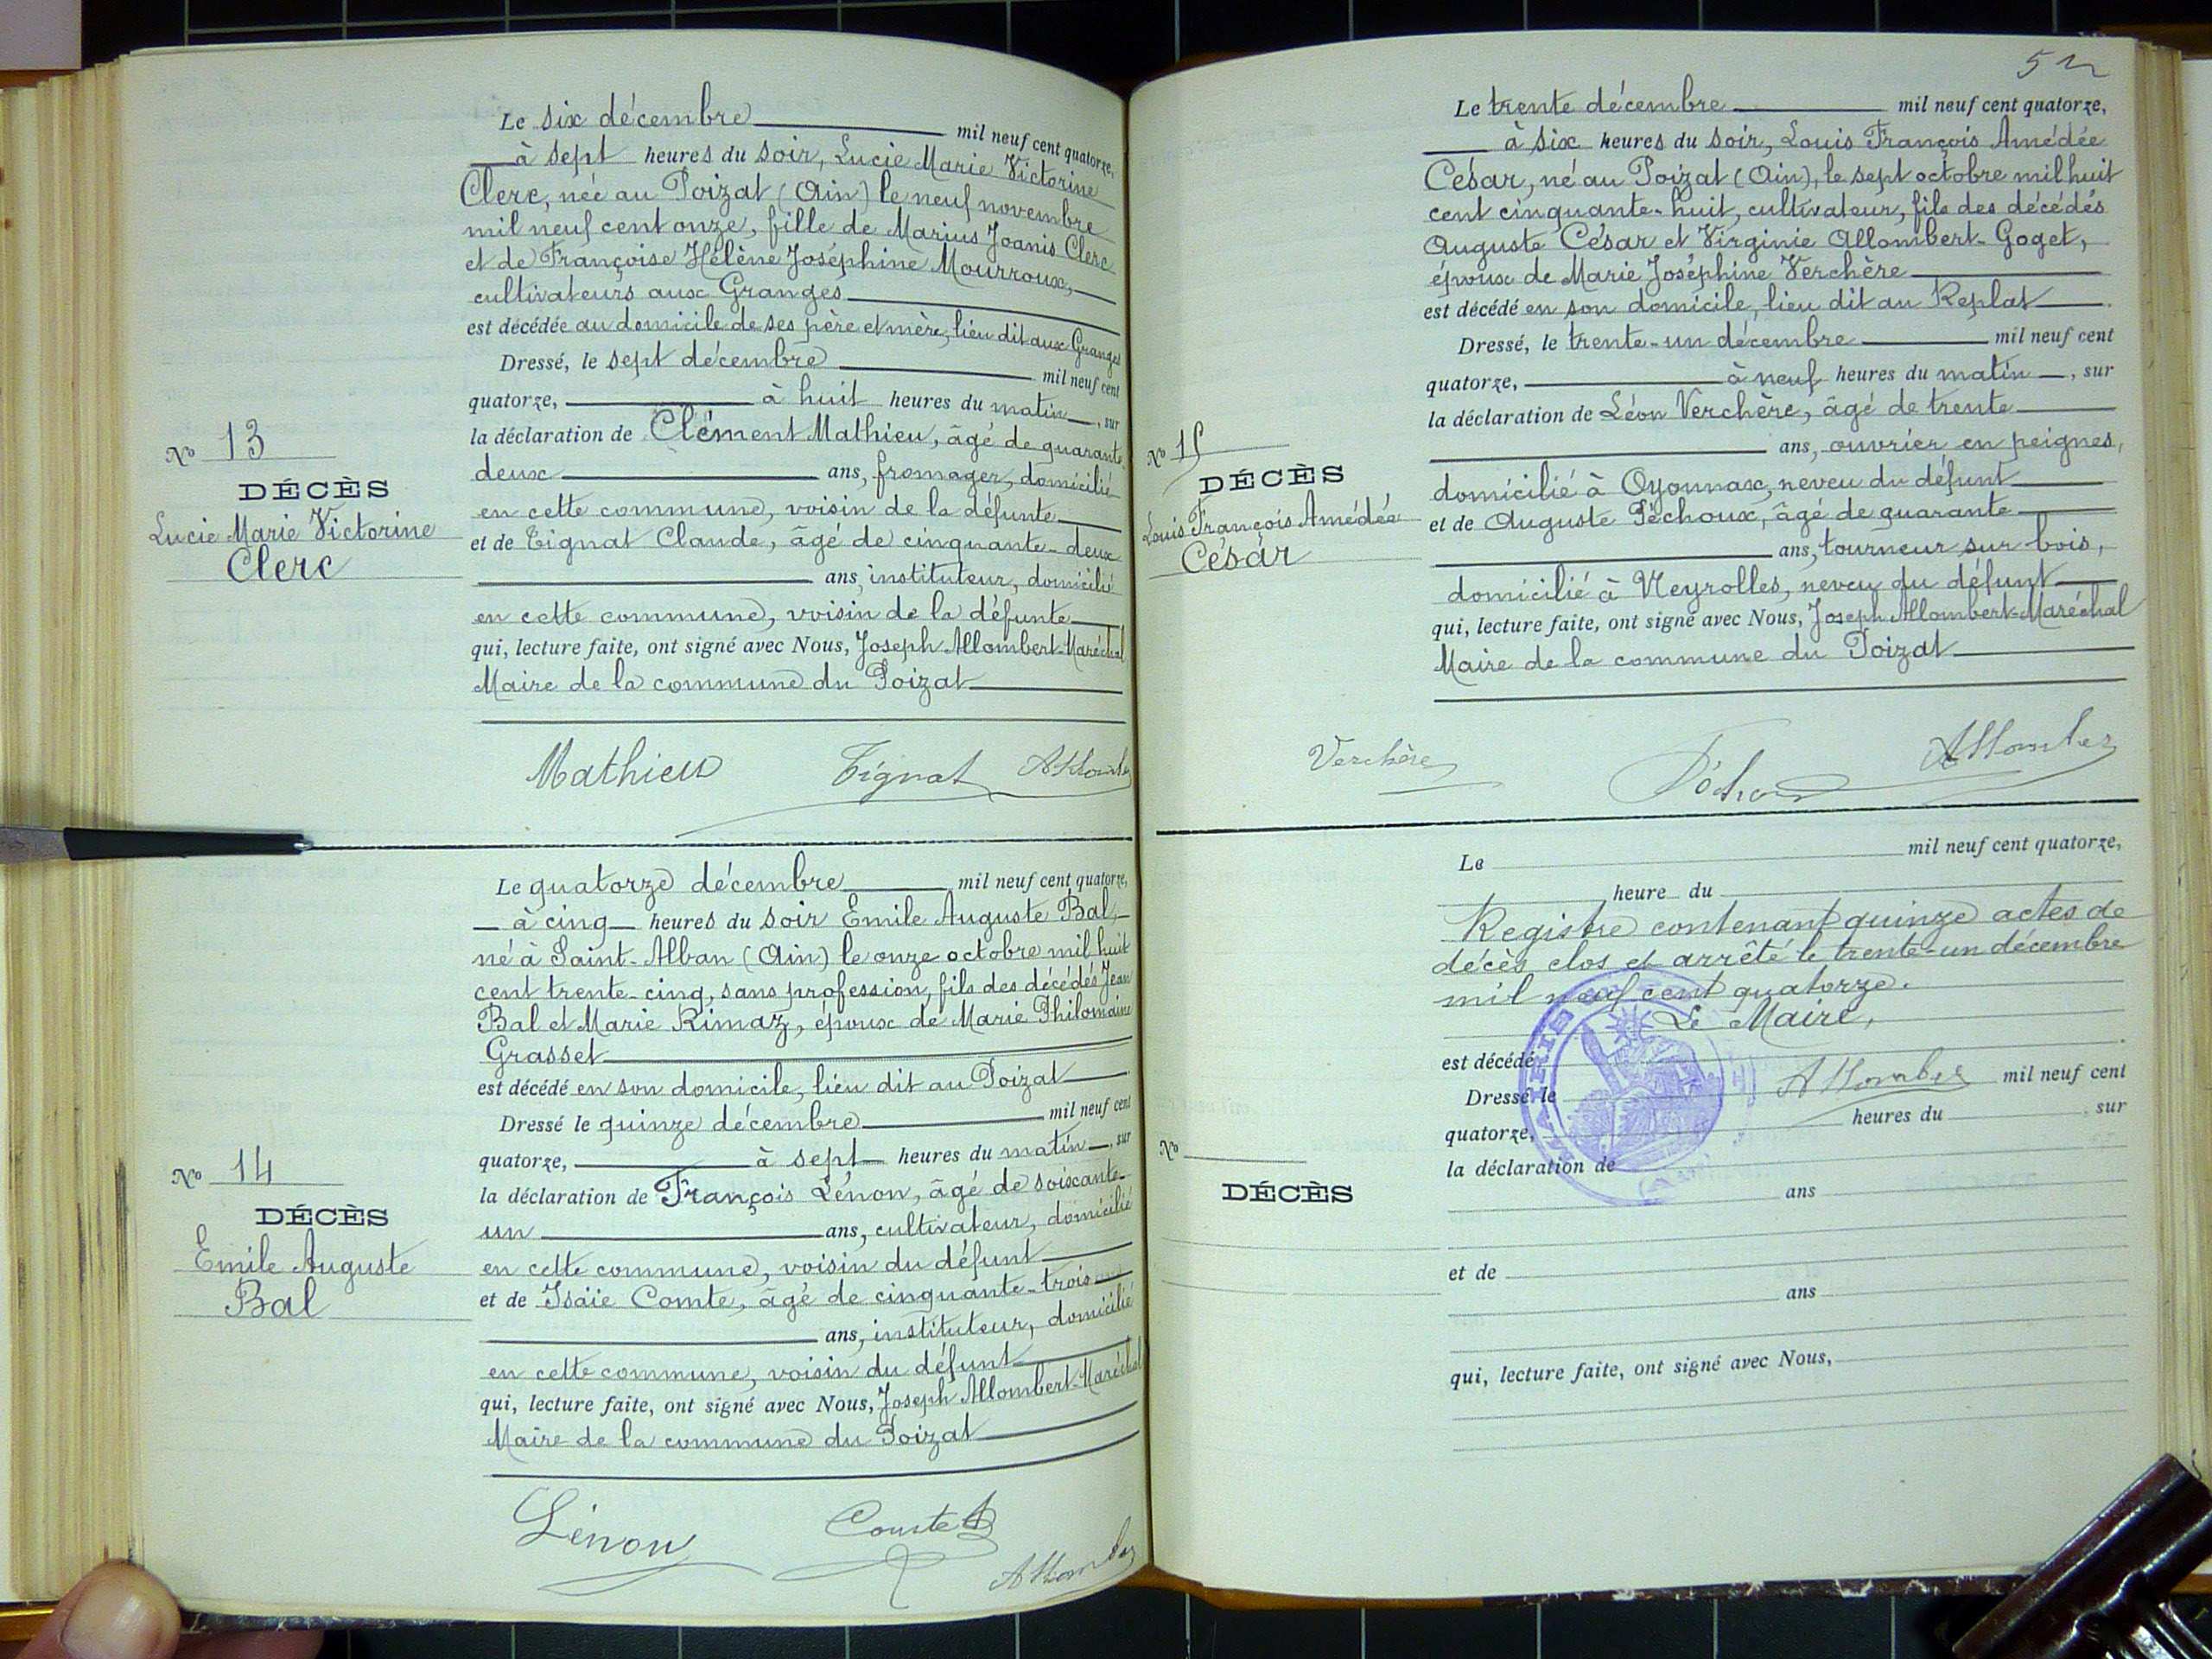 Le six décembre mil neuf cent quatorze,
à sept heures du soir, Lucie Marie Victorine
Clerc, née au Poizat (Ain) le neuf novembre
mil neuf cent onze, fille de Marius Joanis Clerc
et de Françoise Hélène Joséphine Mourroux,
cultivateurs aux Granges
est décédée au domicile de ses père et mère, lieu dit aux Granges
Dressé, le sept décembre mil neuf cent
quatorze, à huit heures du matin, sur
la déclaration de Clément Mathieu, âgé de quarante
deux ans, fromager, domicilié
en cette commune, voisin de la défunte
et de Tignat Claude, âgé de cinquante-deux
ans, instituteur, domicilié
en cette commune, voisin de la défunte
qui, lecture faite, ont signé avec Nous, Joseph Allombert-Maréchal
Maire de la commune du Poizat
Mathieu Tignat Allomber
No 13
DÉCÈS
Lucie Marie Victorine
Clerc
Le quatorze décembre mil neuf cent quatorze,
à cinq heures du soir Emile Auguste Bal,
né à Saint-Alban (Ain) le onze octobre mil huit
cent trente-cinq, sans profession, fils des décédés Jean
Bal et Marie Rimaz, époux de Marie Philomaine
Grasset
est décédé en son domicile, lieu dit au Poizat
Dressé le quinze décembre mil neuf cent
quatorze, à sept heures du matin, sur
la déclaration de François Lénon, âgé de soixante-
un ans, cultivateur, domicilié
en cette commune, voisin du défunt
et de Isaïe Comte, âgé de cinquante-trois
ans, instituteur, domicilié
en cette commune, voisin du défunt
qui, lecture faite, ont signé avec Nous, Joseph Allombert-Maréchal
Maire de la commune du Poizat
Lénon Comte Allomber
No 14
DÉCÈS
Emile Auguste
Bal
52
Le trente décembre mil neuf cent quatorze,
à six heures du soir, Louis François Amédée
César, né au Poizat (Ain), le sept octobre mil huit
cent cinquante-huit, cultivateur, fils des décédés
Auguste César et Virginie Allombert-Goget,
époux de Marie Joséphine Verchère
est décédé en son domicile, lieu dit au Replat.
Dressé, le trente-un décembre mil neuf cent
quatorze, à neuf heures du matin, sur
la déclaration de Léon Verchère, âgé de trente
ans, ouvrier en peignes,
domicilié à Oyonnax, neveu du défunt
et de Auguste Péchoux, âgé de quarante
ans, tourneur sur bois,
domicilié à Neyrolles, neveu du défunt
qui, lecture faite, ont signé avec Nous, Joseph Allombert-Maréchal
Maire de la commune du Poizat
Verchère Péchoux Allomber
No 15
DÉCÈS
Louis François Amédée
César
Le mil neuf cent quatorze,
heure du
Registre contenant quinze actes de
décès clos et arrêté le trente-un décembre
mil neuf cent quatorze.
Le Maire,
est décédé
Allomber
Dressé le mil neuf cent
quatorze, heures du , sur
la déclaration de
ans
et de
ans
qui, lecture faite, ont signé avec Nous,
No
DÉCÈS
MAIRIE